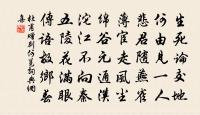 生死論交地
何由見一人
悲君隨燕雀
薄宦走風塵
綿谷元通漢
沱江不向秦
五陵花滿眼
傳語故鄉春
杜甫贈別何邕詞典網
集